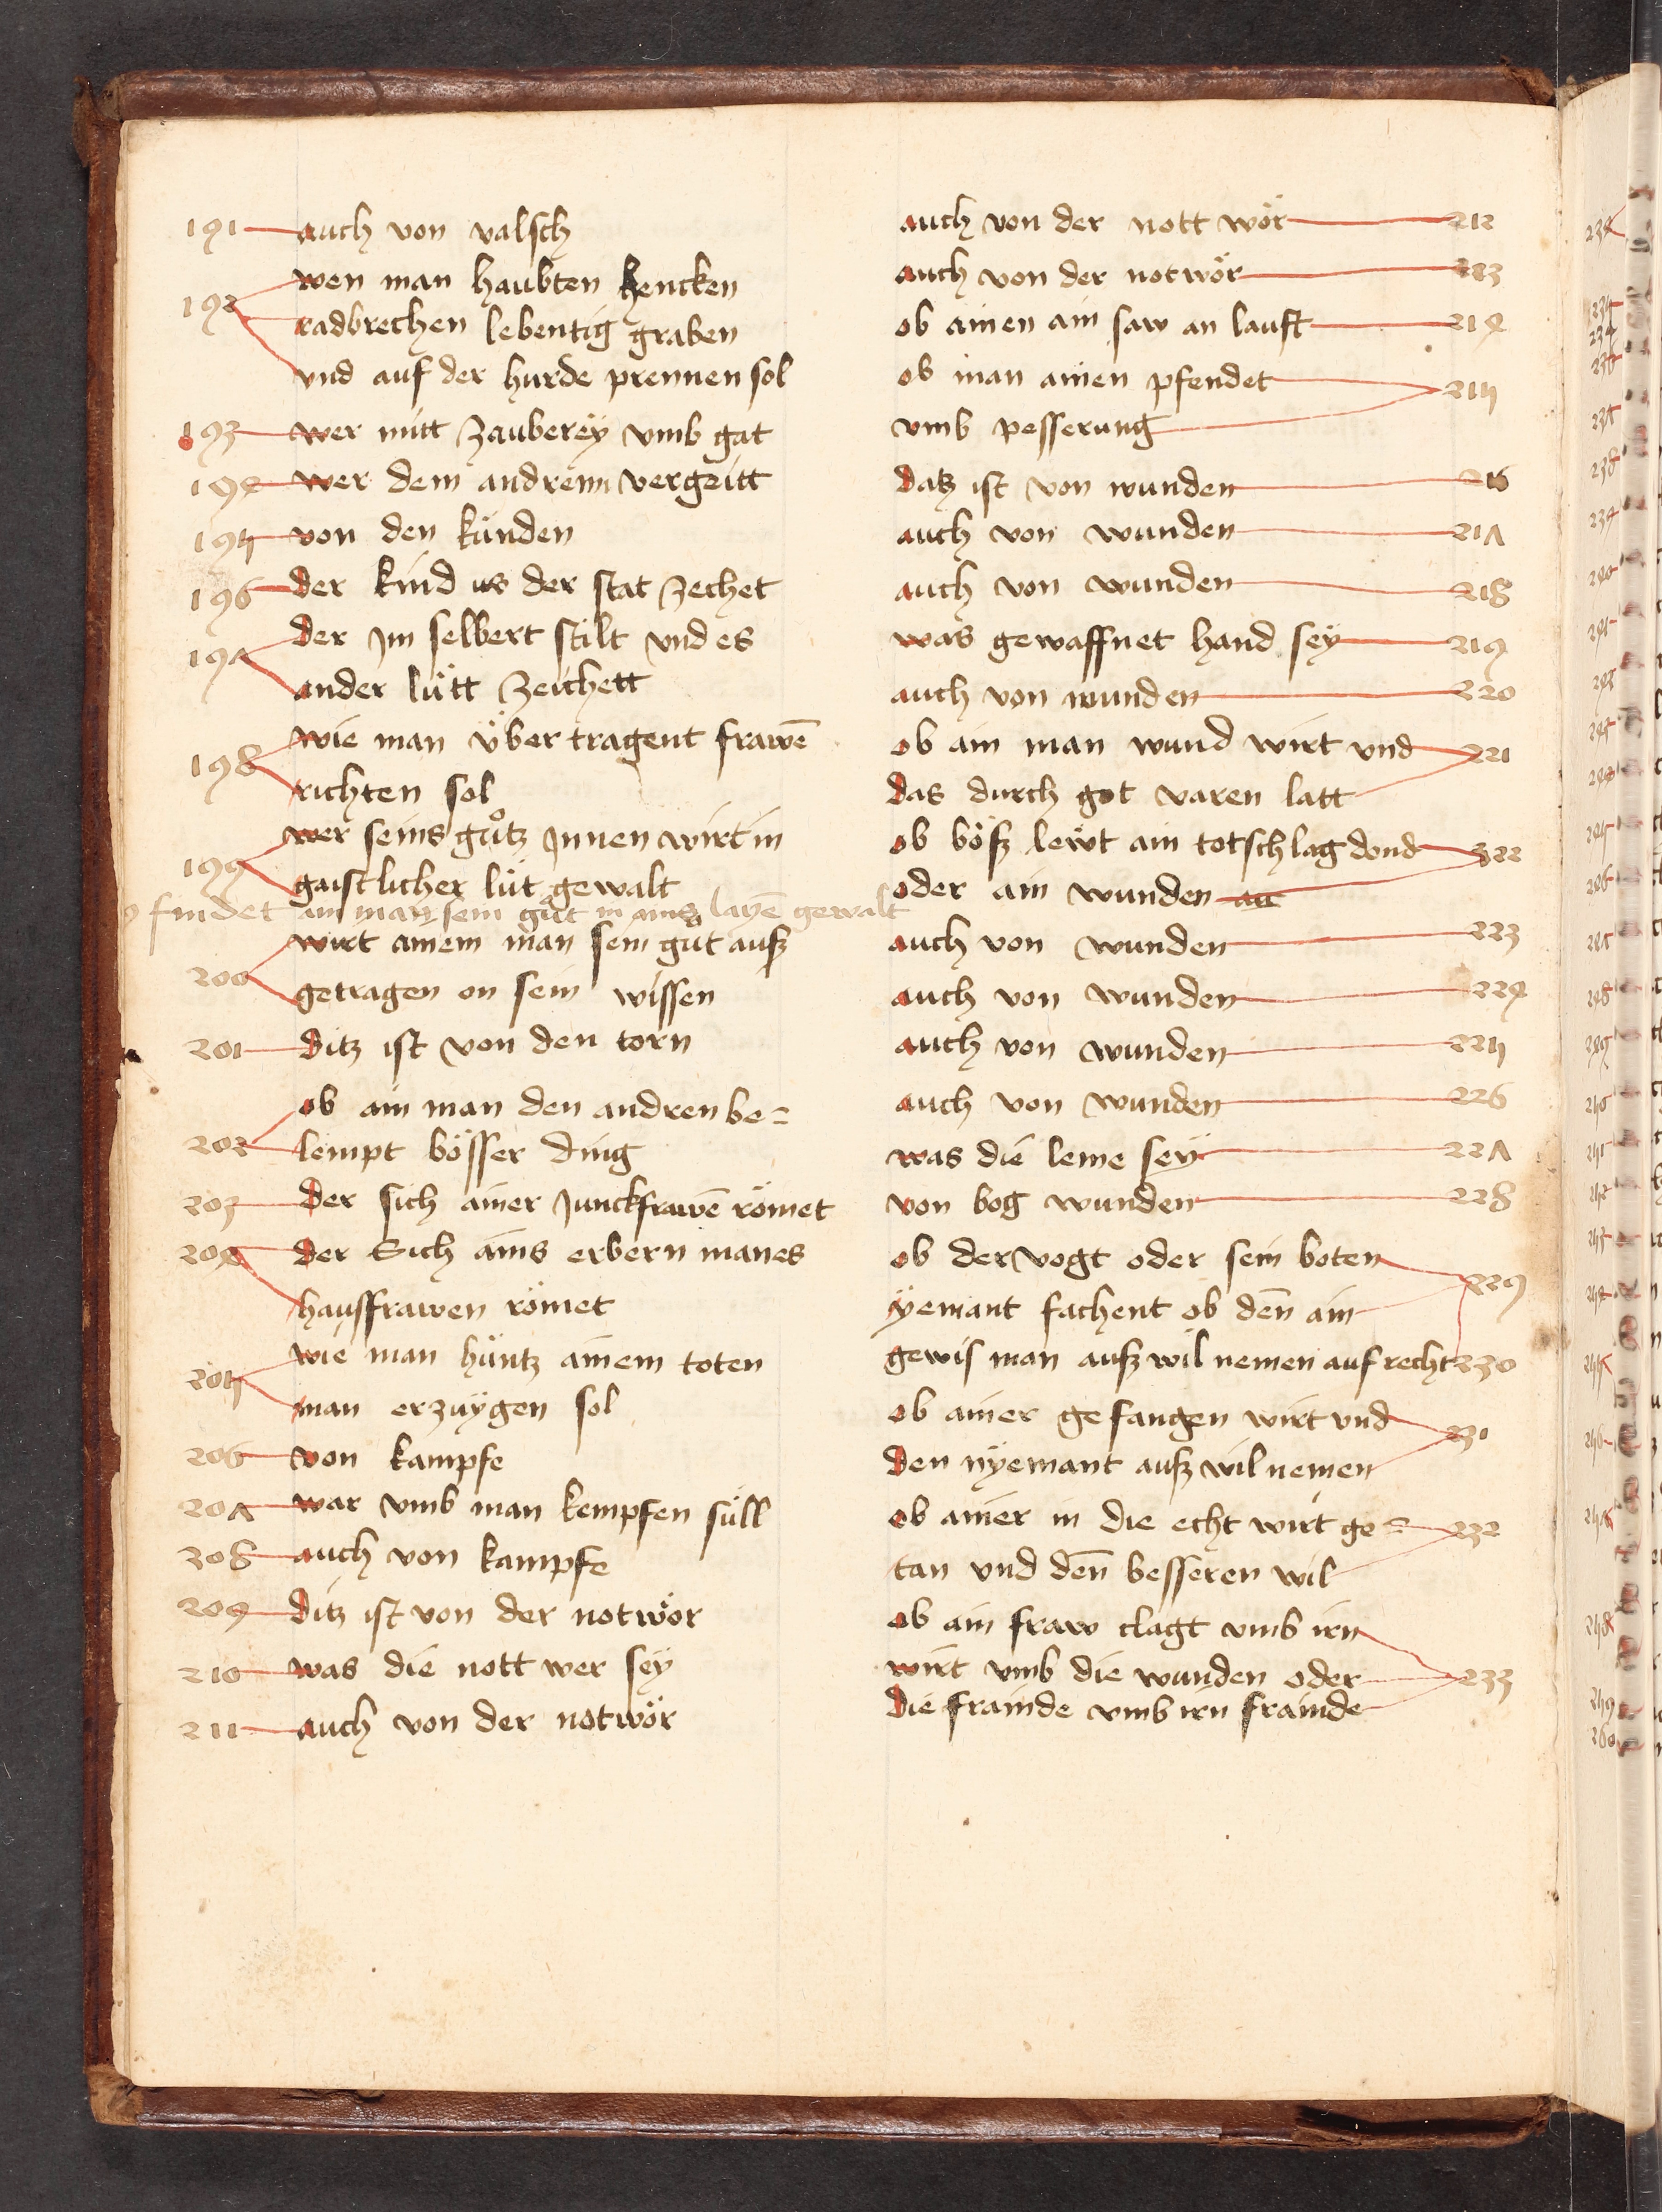 191 auch von valsch
192 wen man haubten hencken
radbrechen lebentig graben
vnd auf der hurde prennen sol
193 wer mitt zauberey vmb gat
194 wer dem andrenn vergeitt
195 von den kinden
196 der kind us der stat zechet
197 der Im selbert stilt vnd es
ander lütt zeichett
198 wie man über tragent frawē
richten sol
199 wer seins gůtz Innen wirt in
gaistlicher lüt gewalt
findet ain man sein gůt in ains layē gewalt
200 wirt ainem man sein gůt ausz
getragen on sein wissen
201 ditz ist von den torn
202 ob ain man den andren be=
lempt bösser ding
203 der sich ainer Junckfrawē römet
204 der Sich ains erbern manes
hausfrawen römet
205 wie man hüntz ainem toten
man erzuÿgen sol
206 von kampfe
207 war vmb man kempfen süll
208 auch von kampfe
209 ditz ist von der notwör
210 was die nott wer seÿ
211 auch von der notwör
auch von der nott wör 212
auch von der notwör 213
ob ainen ain saw an lauft 214
ob man ainen pfendet 215
vmb pesserung
datz ist von wunden 216
auch von wunden 217
auch von wunden 218
was gewaffnet hand seÿ 219
auch von wunden 220
ob ain man wund wirt vnd 221
das durch got varen latt
ob bösz lewt ain totschlag dond 222
oder ain wunden
auch von wunden 223
auch von wunden 224
auch von wunden 225
auch von wunden 226
was die leme seÿ 227
von bog wunden 228
ob der vogt oder sein boten 229
ÿemant fachent ob dēn ain
gewis man ausz wil nemen auf recht 230
ob ainer gefangen wirt vnd 231
den nÿemant ausz wil nemen
ob ainer in die echt wirt ge= 232
tan vnd dēn besseren wil
ob ain fraw clagt vmb irn
wirt vmb die wunden oder 233
die frainde vmb irn frainde